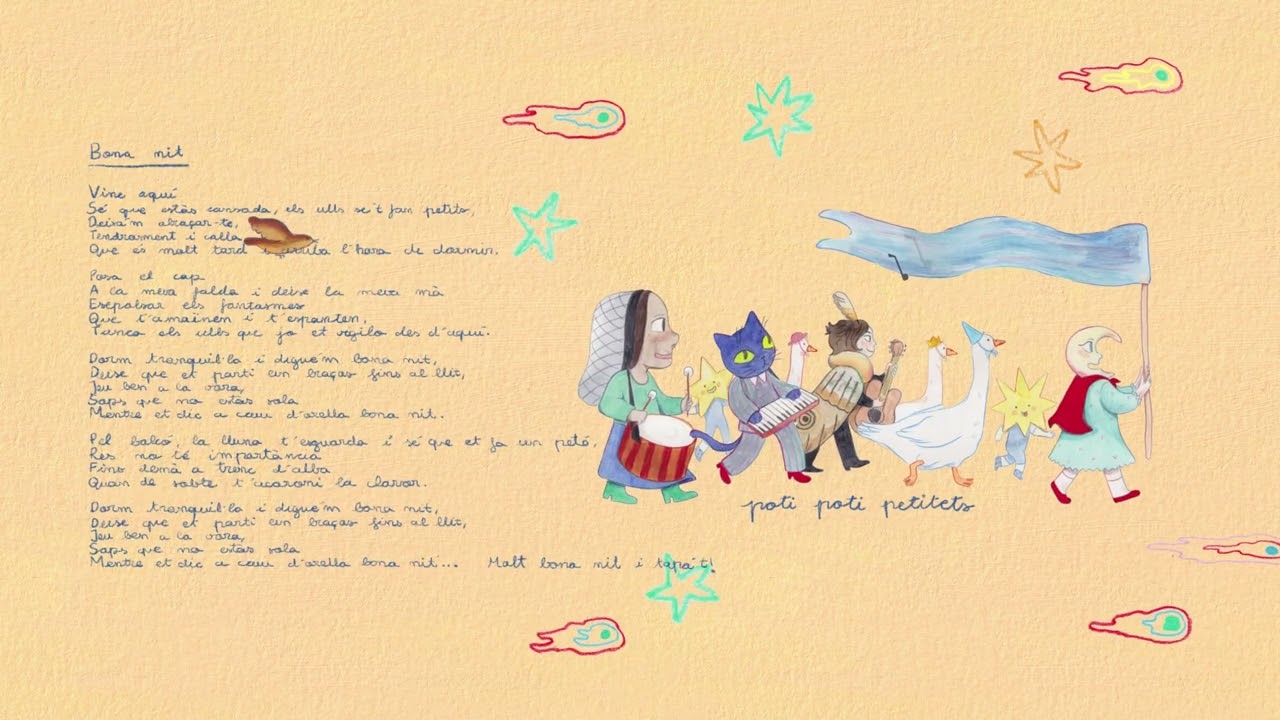 Bona nit
Vine aquí
Sé que estàs cansada, els ulls se't fan petits,
Deixa'm abraçar-te,
Tendrament i calla
Que és molt tard i arriba l'hora de dormir.
Posa el cap
A la meva falda i deixa la meva mà
Espolsar els fantasmes
Que t'amaïnen i t'espanten,
Tanca els ulls que jo et vigilo des d'aquí.
Dorm tranquil·la i digue'm bona nit,
Deixa que et porti en braços fins al llit,
Jeu ben a la vora,
Saps que no estàs sola
Mentre et dic a cau d'orella bona nit..
Pel balcó, la lluna t'esguarda i sé que et fa un petó,
Res no té importància
Fins demà a trenc d'alba
Quan de sobte t'acaroni la claror.
Dorm tranquil·la i digue'm bona nit,
Deixa que et porti en braços fins al llit,
Jeu ben a la vora,
Saps que no estàs sola
Mentre et dic a cau d'orella bona nit... Molt bona nit i tapa't!
poti poti petitets